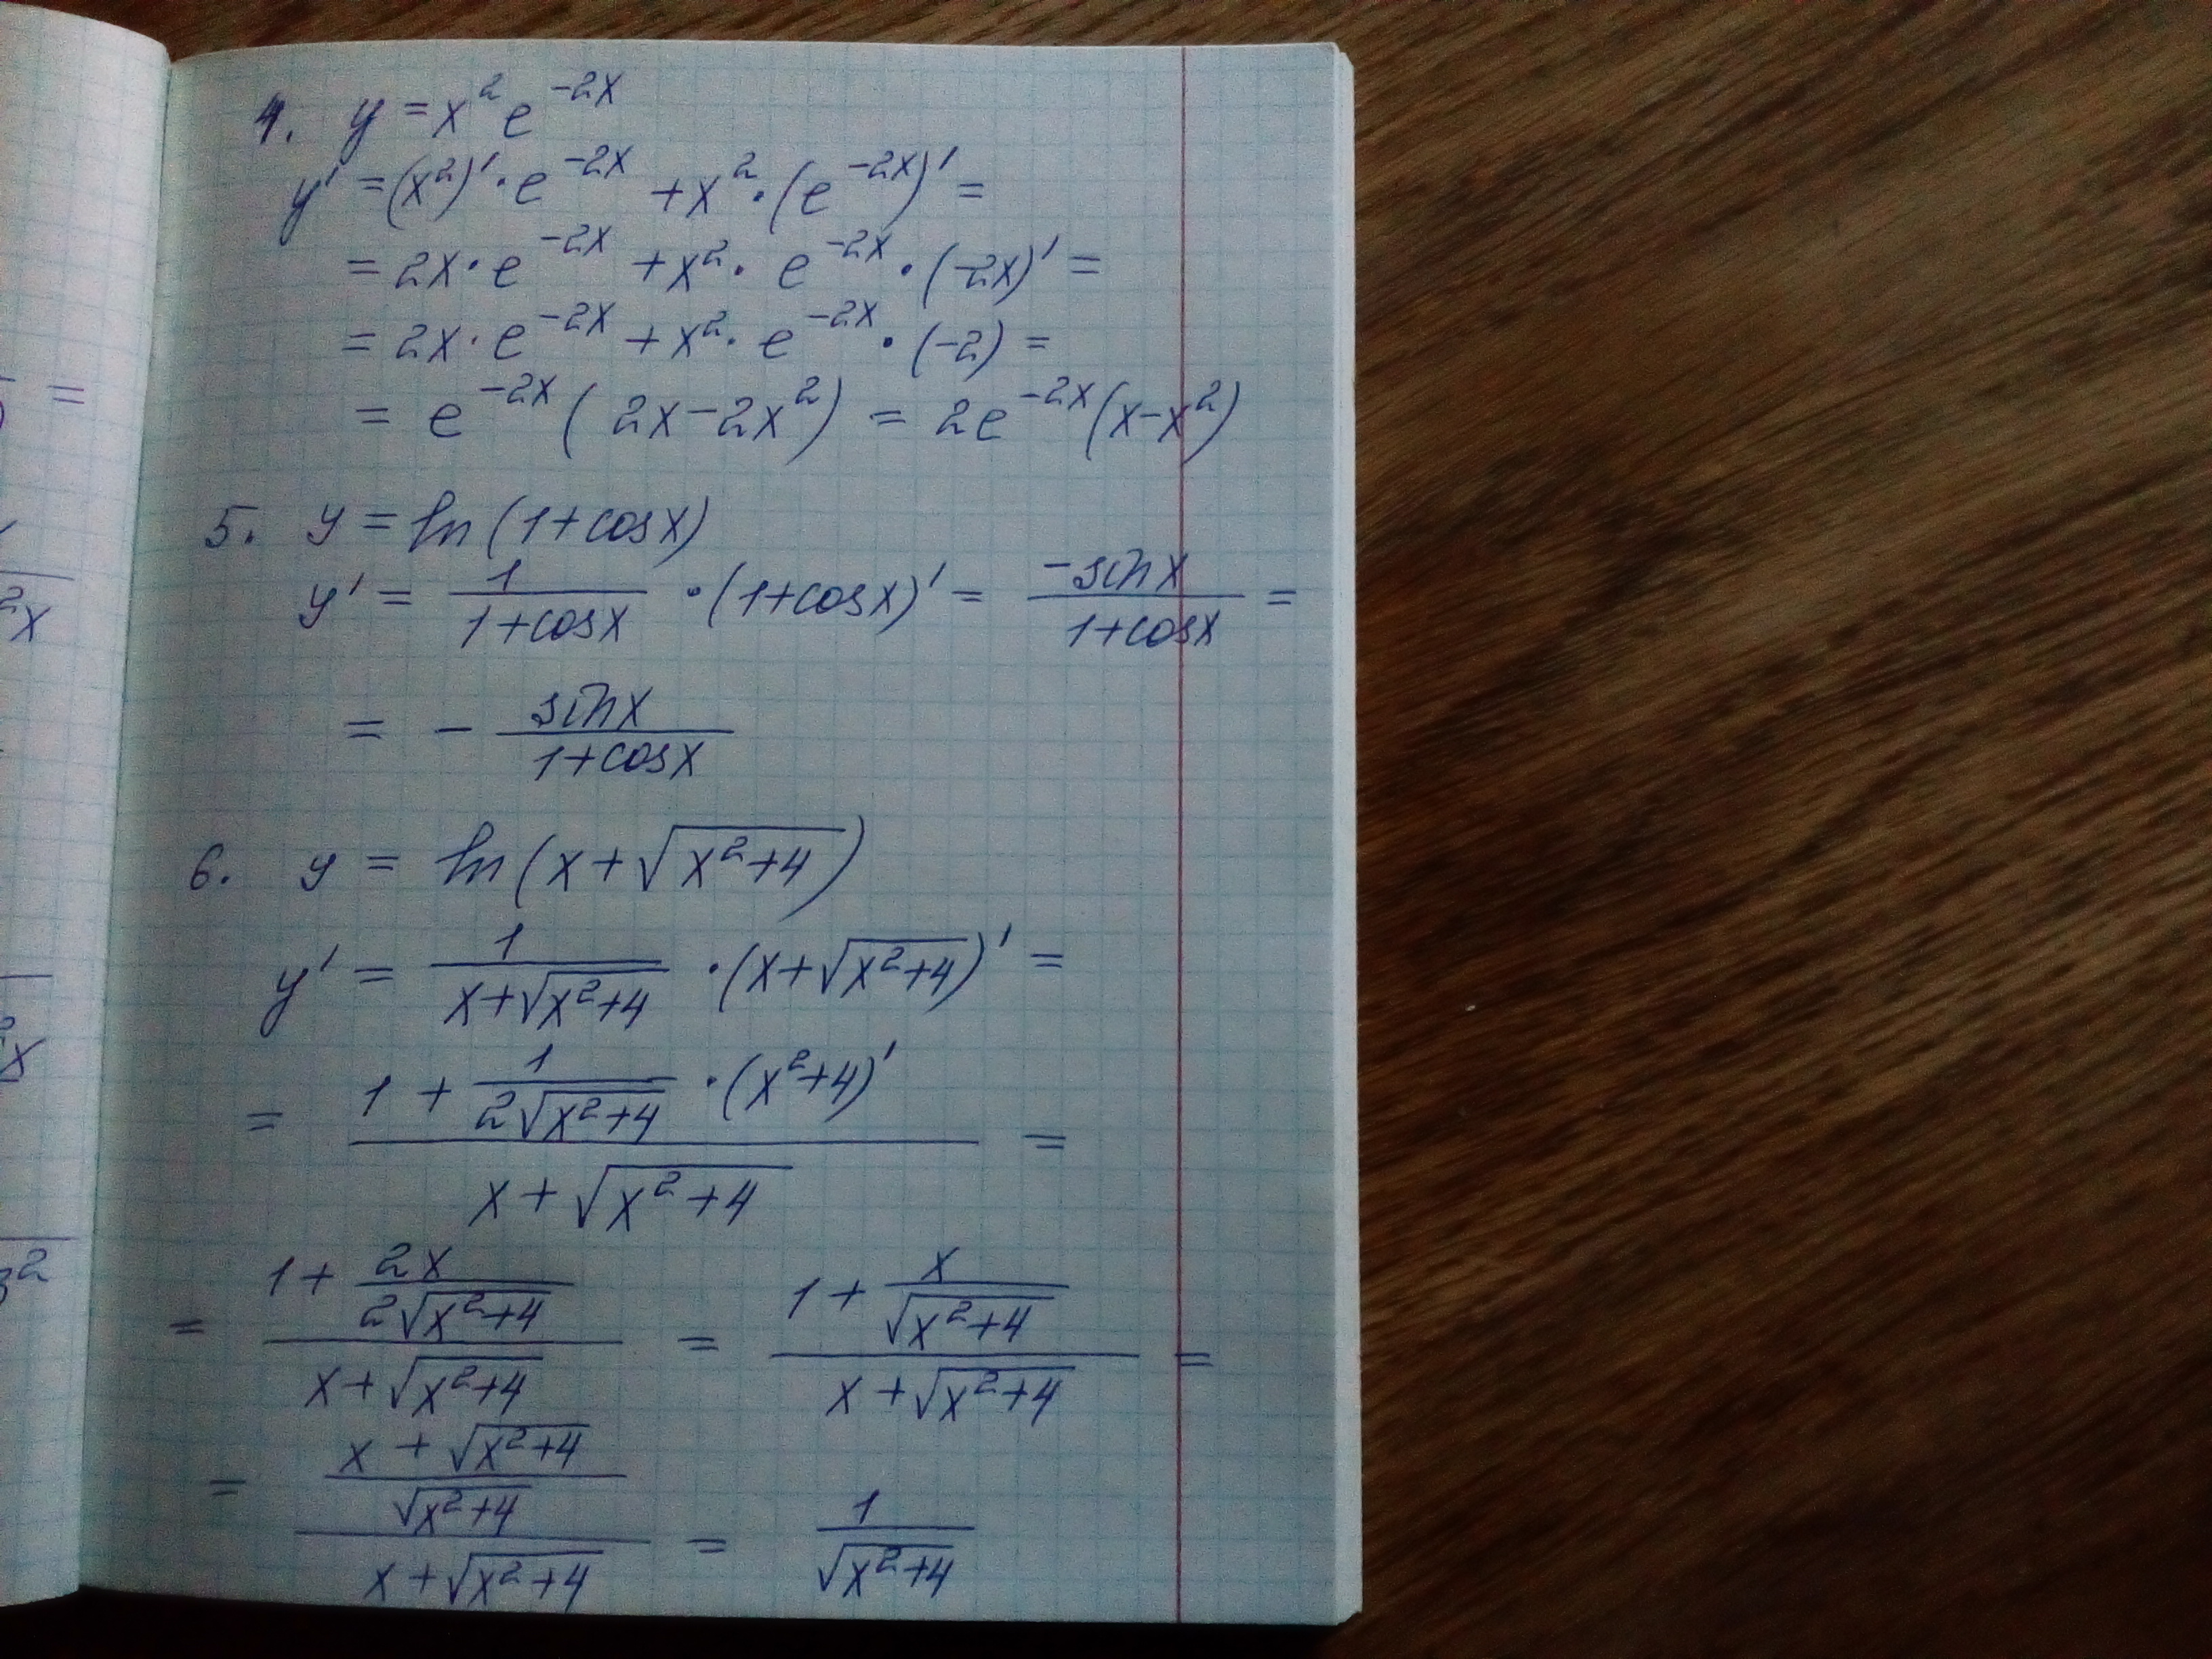 4. y = x² e^(-2x)
y' = (x²)' · e^(-2x) + x² · (e^(-2x))' =
= 2x · e^(-2x) + x² · e^(-2x) · (-2x)' =
= 2x · e^(-2x) + x² · e^(-2x) · (-2) =
= e^(-2x) (2x - 2x²) = 2e^(-2x) (x - x²)
5. y = ln(1+cosx)
y' = 1/(1+cosx) · (1+cosx)' = (-sinx)/(1+cosx) =
= - sinx/(1+cosx)
6. y = ln(x + √(x²+4))
y' = 1/(x+√(x²+4)) · (x+√(x²+4))' =
= (1 + 1/(2√(x²+4)) · (x²+4)')/(x + √(x²+4)) =
= (1 + 2x/(2√(x²+4)))/(x+√(x²+4)) = (1 + x/√(x²+4))/(x+√(x²+4)) =
= ((x + √(x²+4))/√(x²+4))/(x+√(x²+4)) = 1/√(x²+4)